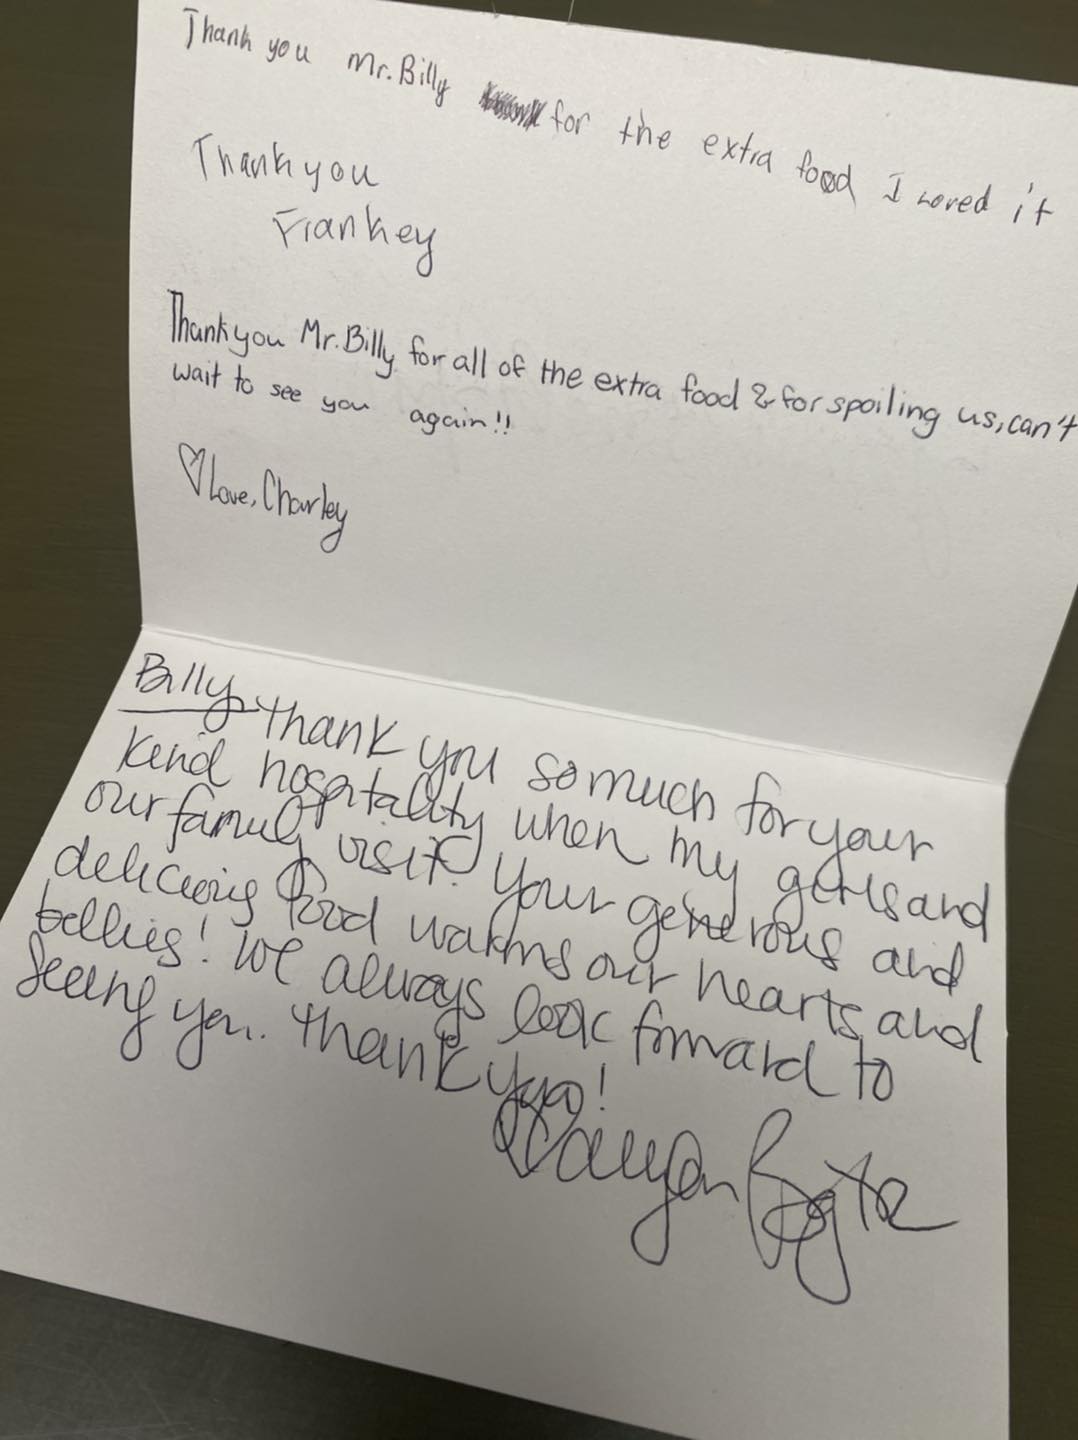 Thank you Mr. Billy for the extra food I loved it
Thank you
Frankey
Thank you Mr. Billy for all of the extra food & for spoiling us, can't
wait to see you again!!
♡Love, Charley
Billy thank you so much for your
kind hospitality when my girls and
our family visit. Your generous and
delicious food warms our hearts and
bellies! We always look forward to
seeing you. Thank you!